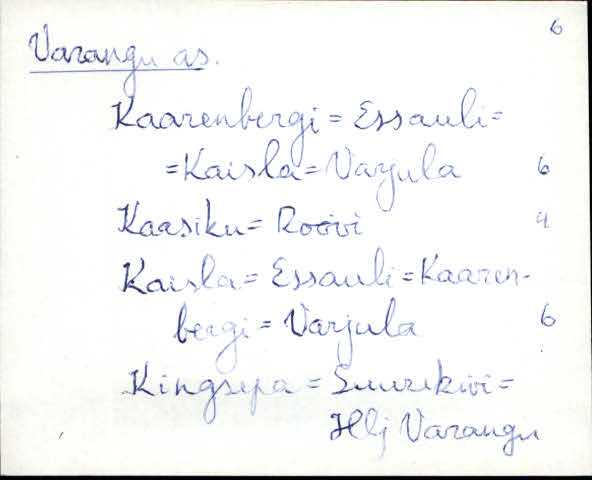 6
Varangu as.
Kaarenbergi = Essauli =
= Kaisla = Varjula 6
Kaasiku = Roovi 4
Kaisla = Essauli = Kaaren-
bergi = Varjula 6
Kingsepa = Suurekivi =
Hlj Varangu